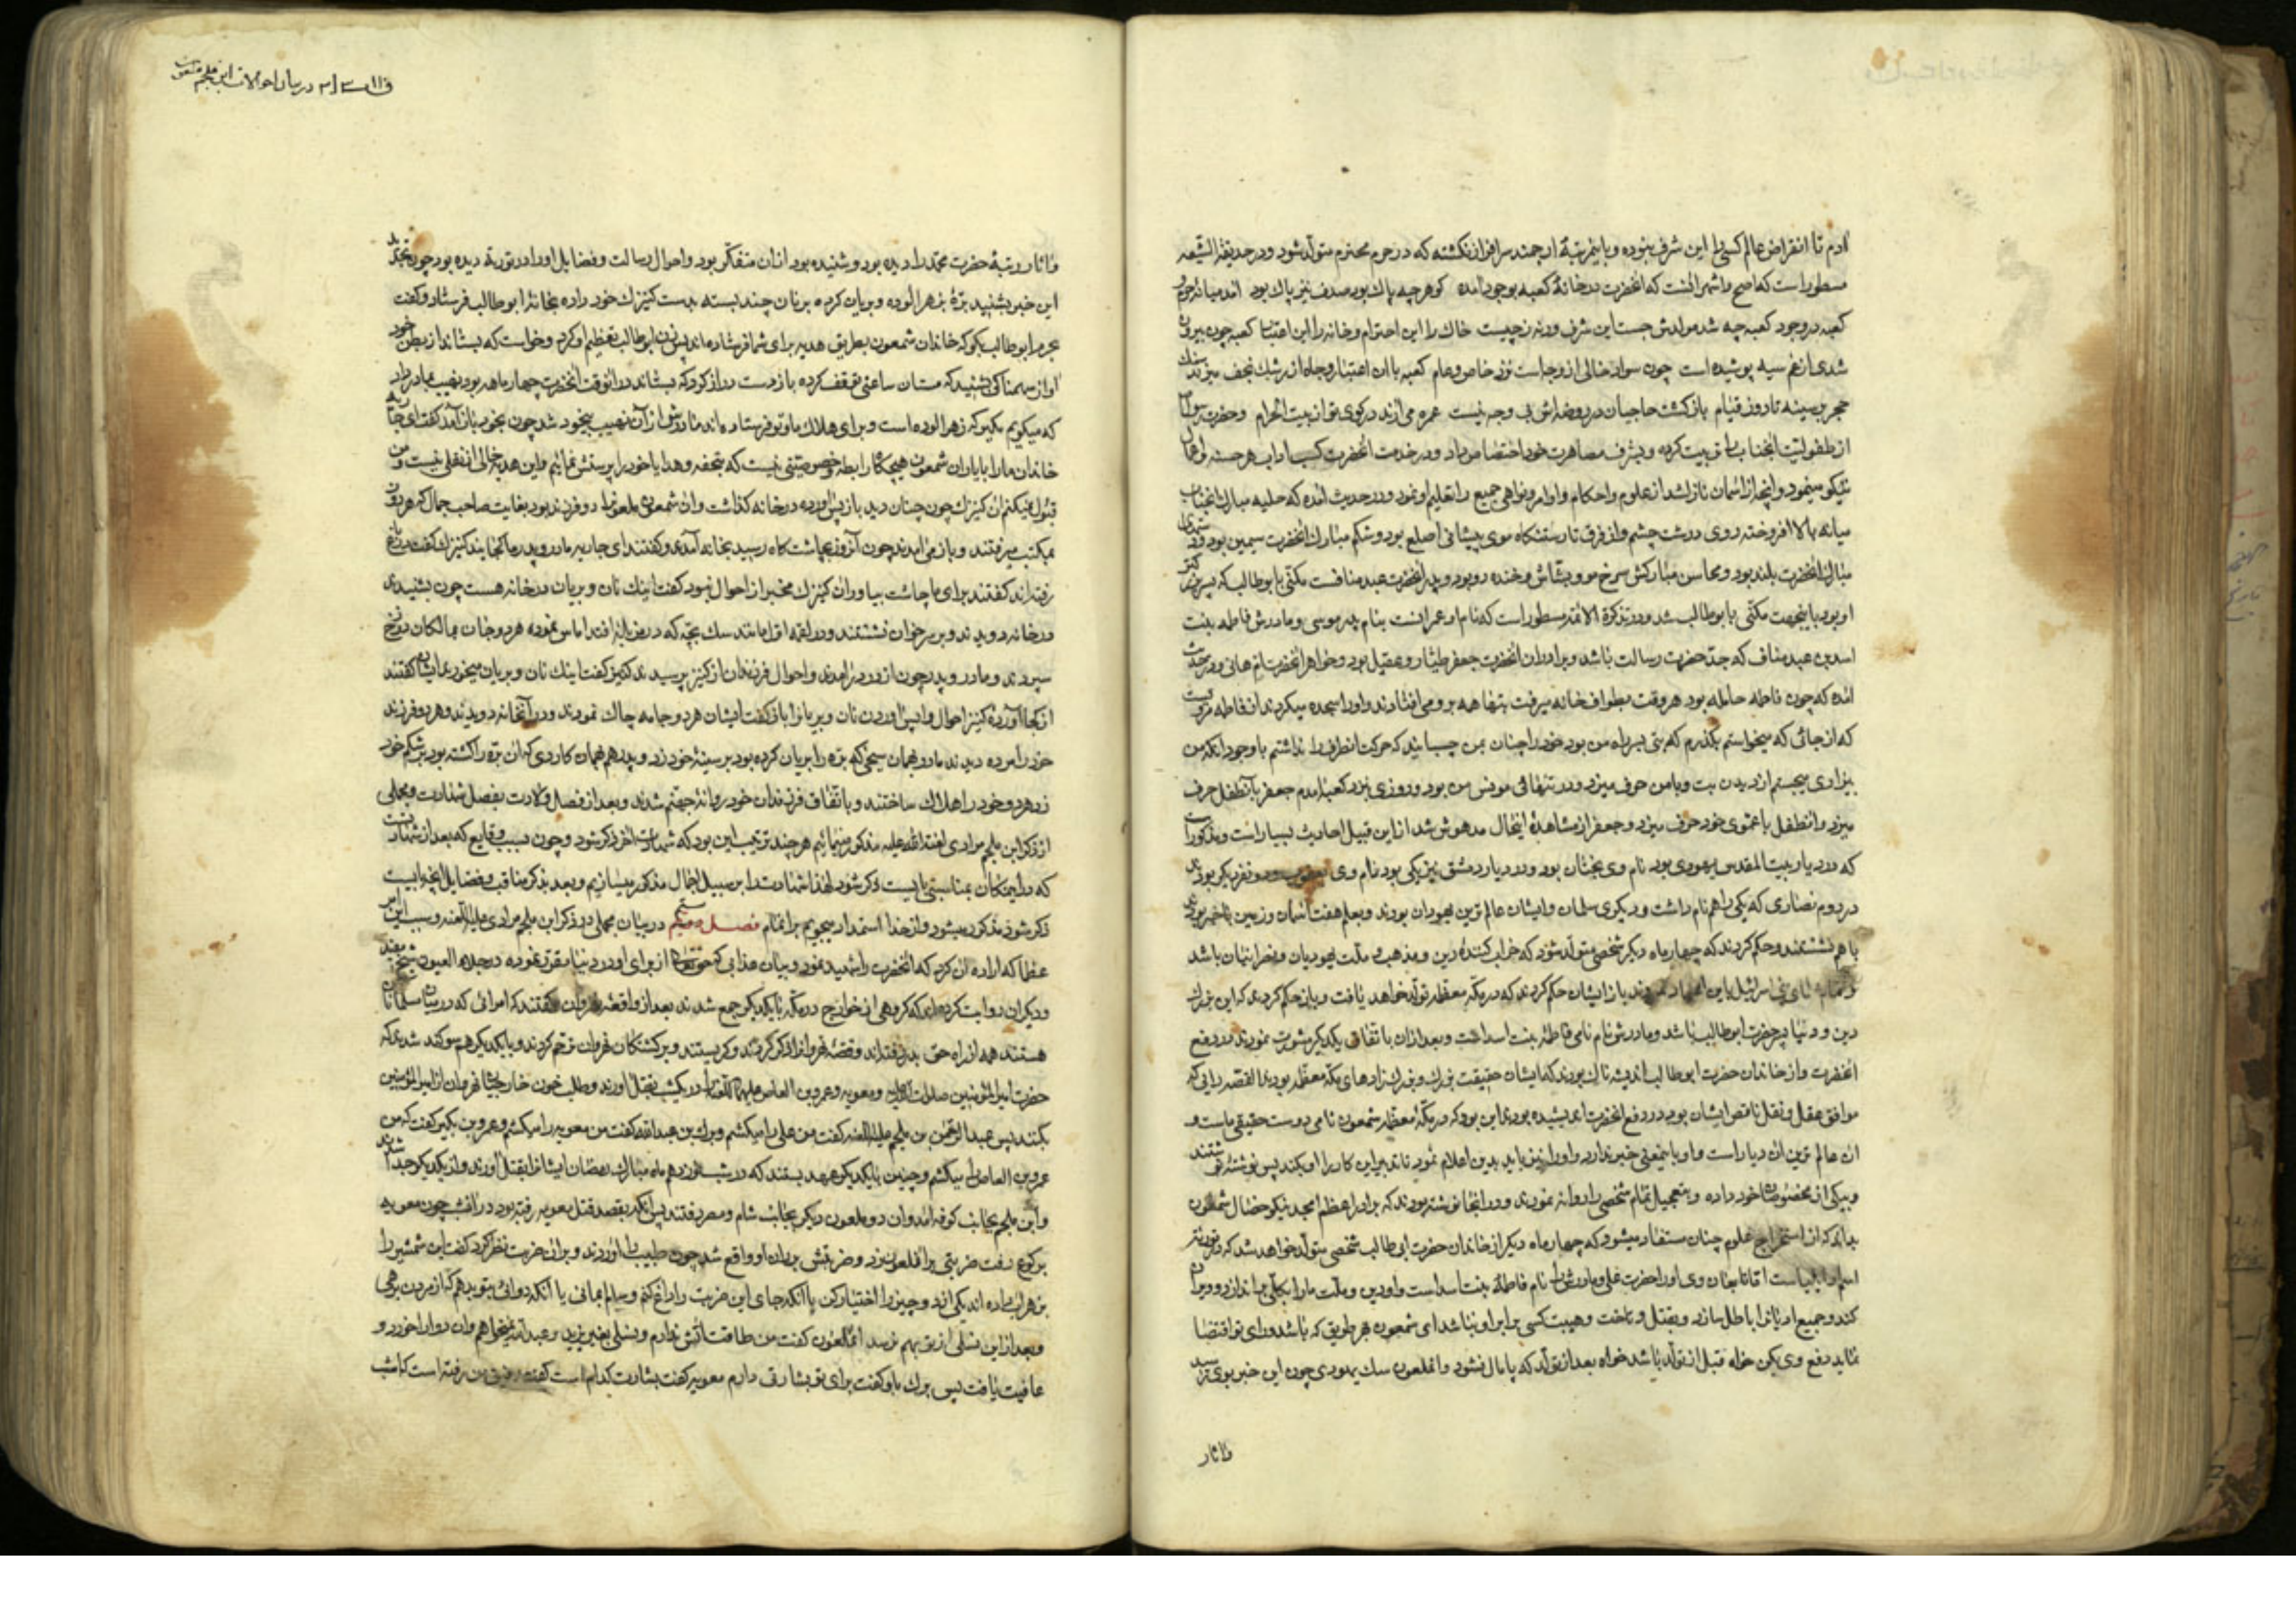 ادم تا انقراض عالم کسی را این شرف نبوده و باین مرتبهٔ ارجمند سرافراز نکشته که در حرم محترم متولد شود ودر حدیقة الشیعه
مسطور است که اصح واشهر انست که انحضرت در خانهٔ کعبه بوجود آمده کوهر چه پاك بود صدف نیز پاك بود امد میانهٔ حرم
کعبه در وجود کعبه چه شد مولدش جست این شرف ورنه زچیست خاك را این احترام وخانه را این اعتبا کعبه چون بیرون
شدی از غم سیه پوشیده است چون سواد خالی از وجاست نزد خاص وعام کعبه باان اعتبار وجاه از رشك نجف میزند سنك
حجر بر سینه تا روز قیام باز کشت حاجیان در روضه اش بی وجه نیست عمره می ارند در کوی تو از بیت الحرام وحضرت رسول
از طفولیت انجناب را تربیت کرده وبشرف مصاهرت خود اختصاص داد ودر خدمت انحضرت کسب اداب هر حسنه
نیکو مینمود وانچه از اسمان نازل شد از علوم واحکام واوامر ونواهی جمیع را تعلیم او نمود ودر حدیث امده که حلیه مبارك انجناب
میانه بالا افروخته روی درشت چشم واز فرق تا رستنکاه موی پیشانی اصلع بود وشکم مبارك انحضرت سیمین بود
مبارك انحضرت بلند بود ومحاسن مبارکش سرخ مو وبشاش وخنده رو بود وپدر انحضرت عبد منافست مکنی بابو طالب که پسر بزرکتر
او بود باینجهت مکنی بابو طالب شد ودر تذکرة الائمه مسطور است که نام او عمرانست بنام پدر موسی ومادرش فاطمه بنت
اسد بن عبد مناف که جد حضرت رسالت باشد وبرادران انحضرت جعفر طیار وعقیل بود وخواهر انحضرت ام هانی ودر حدیث
امده که چون فاطمه حامله بود هر وقت بطواف خانه میرفت بتها همه برو می افتادند واورا سجده میکردند از فاطمه مرویست
که از جائی که میخواستم بکذرم که بتی بسر راه من بود خود را چنان بمن چسبانید که حرکت انطرف را نداشتم با وجود انکه من
بیزاری میجستم از دیدن بت وبا من حرف میزد ودر تنهائی مونس من بود وروزی نزد کعبه امدم جعفر با آنطفل حرف
میزد وانطفل با عموی خود حرف میزد وجعفر از مشاهدهٔ اینحال مدهوش شد از این قبیل احادیث بسیار است ومذکور است
که در دیار بیت المقدس یهودی بود نام وی بخثان بود ودر دیار دمشق نیز یکی بود نام وی یعقوب ودو نفر دیکر بودند
در روم نصاری که یکی راهم نام داشت ودیکری سلمان وایشان عالم ترین یهودان بودند وبعلم هفت اسمان وزمین باخبر بودند
باهم نشستند وحکم کردند که چهار ماه دیکر شخصی متولد شود که خراب کنندهٔ دین ومذهب وملت یهودیان ونصرانیان باشد
بنی اسرائیل باین باز ایشان حکم کردند که در مکهٔ معظمه تولد خواهد یافت وباز حکم کردند که این بزرك
دین ودنیا پسر حضرت ابو طالب باشد ومادرش نام نامی فاطمهٔ بنت اسد است وبعد ازان باتفاق یکدیکر مشورت نمودند در دفع
انحضرت واز خاندان حضرت ابو طالب اندیشه ناك بودند که ایشان حقیقت بزرك وبزرك زادهای مکهٔ معظمه بودند القصه رایی که
موافق عقل ونقل ناقص ایشان بود در دفع انحضرت اندیشیده بودند این بود که در مکهٔ معظمه شمعون نامی دوست حقیقی ماست و
ان عالم ترین ان دیار است واو با اینمعنی خبر ندارد واورا نیز باید بدین اعلام نمود تا تدبیر این کار را او بکند پس نوشتهٔ نوشتند
وبیکی از مخصوصان خود داده وبتعجیل تمام شخصی را روانه نمودند ودر انجا نوشته بودند که برادر اعظم امجد نیکو خصال شمعون
بداند که از استخراج علوم چنان مستفاد میشود که چهار ماه دیکر از خاندان حضرت ابی طالب شخصی متولد خواهد شد که
وی اورا حضرت علی ومادرش را نام فاطمهٔ بنت اسد است واو دین وملت مارا بکلی براندازد
کند وجمیع ادیانرا باطل سازد وبقتل وتاخت وهیبت کسی برابر او نباشد ای شمعون بهر طریق که باشد ورای تو اقتضا
نماید دفع وی بکن خواه قبل از تولد باشد خواه بعد از تولد که پامال نشود وانملعون سك یهودی چون این خبر بوی رسید
واثار
واثار ورتبهٔ حضرت محمد را دیده بود وشنیده بود ازان متفکر بود واحوال رسالت وفضایل اورا در توریة دیده بود چون
این خبر بشنید برهٔ بزهر الوده وبریان کرده بر نان چند بسته بدست کنیزك خود داده بخانهٔ ابو طالب فرستاد وکفت
بحرم ابو طالب بکو که خاندان شمعون بطریق هدیه برای شما فرستاده اند پس زن ابو طالب تعظیم او کرد وخواست که بستاند از بطن خود
اواز سهمناکی شنید که مستان ساعتی توقف کرده باز دست دراز کرد که بستاند دران وقت انحضرت چهار ماهه بود نهیب بمادر داد
که میکویم مکیر که زهر الوده است وبرای هلاك ما وتو فرستاده اند مادرش از آن نهیب بیخود شد چون بخود باز آمد کفت ای جاریه
خاندان مارا بایاران شمعون هیچکاه رابطه وخصوصیتی نیست که بتحفه وهدایا خود را پرستش نمائیم واین هدیه خالی از نفلی نیست ومن
قبول نمیکنم ان کنیزك چون چنان دید باز پس اورده در خانه کذاشت وان شمعون ملعونرا دو فرزند بود بغایت صاحب جمال که هر روز
بمکتب میرفتند وباز می امدند چون آنروز بچاشت کاه رسید بخانه آمدند وکفتند ای جاریه مادر وپدر ما کجایند کنیزك کفت بباغ
رفته اند کفتند برای ما چاشت بیاور ان کنیزك مخبر از احوال نبود کفت اینك نان وبریان در خانه هست چون بشنیدند
در خانه دویدند وبر سر خوان نشستند ودر لقمه اول مانند سك بچه که در افتد اماس نموده هر دو جان بمالکان دوزخ
سپردند ومادر وپدر چون از در درامدند واحوال فرزندان از کنیز پرسیدند کنیز کفت اینك نان وبریان میخورند ایشان کفتند
از کجا آوردهٔ کنیز احوال واپس اوردن نان وبریانرا باز کفت ایشان هر دو جامه چاك نمودند ودر آنخانه دویدند وهر دو فرزند
خود را مرده دیدند مادر همان سیخی که بره را بریان کرده بود بر سینهٔ خود زد وپدر هم همان کاردی که ان بره را کشته بود بر شکم خود
زد هر دو خود را هلاك ساختند وباتفاق فرزندان خود روانهٔ جهنم شدند وبعد از فصل ولادت بفصل شهادت ومجملی
از ذکر ابن ملجم مرادی لعنة الله علیه مذکور مینمائیم هر چند ترتیب این بود که شهادت اخر ذکر شود وچون بسبب وقایع که بعد از شهادتست
که در ایمکان بمناسبتی بایست ذکر شود لهذا شهادت را بر سبیل اجمال مذکور میسازیم وبعد بذکر مناقب وفضایل انجوابیست
ذکر شود مذکور میشود واز خدا استمداد میجویم بر اتمام فصل سیم در بیان مجملی در ذکر ابن ملجم مرادی علیه اللعنه وسبب این امر
عظما که اراده ان کرد که انحضرت را شهید نمود وبیان عذابی که حق تعالی از برای او در دنیا مقرر نموده در جلاء العیون شیخ مفید
ودیکران روایت کرده اند که کروهی از خوارج در مکه بایکدیکر جمع شدند بعد از واقعهٔ نهروان وکفتند که امرائی که در میان مسلمانان
هستند همه از راه حق بدر رفته اند وقصهٔ نهروانرا ذکر کردند وکریستند وبر کشتکان نهروان ترحم کردند وبایکدیکر هم سوکند شدند که
حضرت امیر المؤمنین صلوات الله علیه ومعویه وعمرو بن العاص علیهما اللعنه را در یکشب بقتل اورند وطلب خون خارجیان نهروان از امیر المؤمنین
بکنند پس عبد الرحمن بن ملجم علیه اللعنه کفت من علی را میکشم وبرك بن عبد الله کفت من معویه را میکشم وعمرو بن بکیر کفت که من
عمرو بن العاص را میکشم وچنین بایکدیکر عهد بستند که در شب نوزدهم ماه مبارك رمضان ایشانرا بقتل اورند واز یکدیکر جدا شدند
وابن ملجم بجانب کوفه امد وان دو ملعون دیکر بجانب شام ومصر رفتند پس انکه بقصد قتل معویه رفته بود در انشب چون معویه
برکوع رفت ضربتی بر انملعون زد وضربتش بر ران او واقع شد چون طبیب را اوردند وبر ان ضربت نظر کرد کفت این شمشیر را
بزهر اب داده اند یکی از دو چیز را اختیار کن یا انکه جای این ضربت را داغ کنم وسالم بمانی یا آنکه دوائی بتو بدهم که از مردن برهی
وبعد از این نسلی از تو بهم نرسد انملعون کفت من طاقت اتش ندارم ونسلی بغیر یزید وعبد الله نمیخواهم وان دوا را خورد و
عافیت یافت پس برك باو کفت برای تو بشارتی دارم معویه کفت بشارت کدام است کفت رفیق من رفته است که امشب